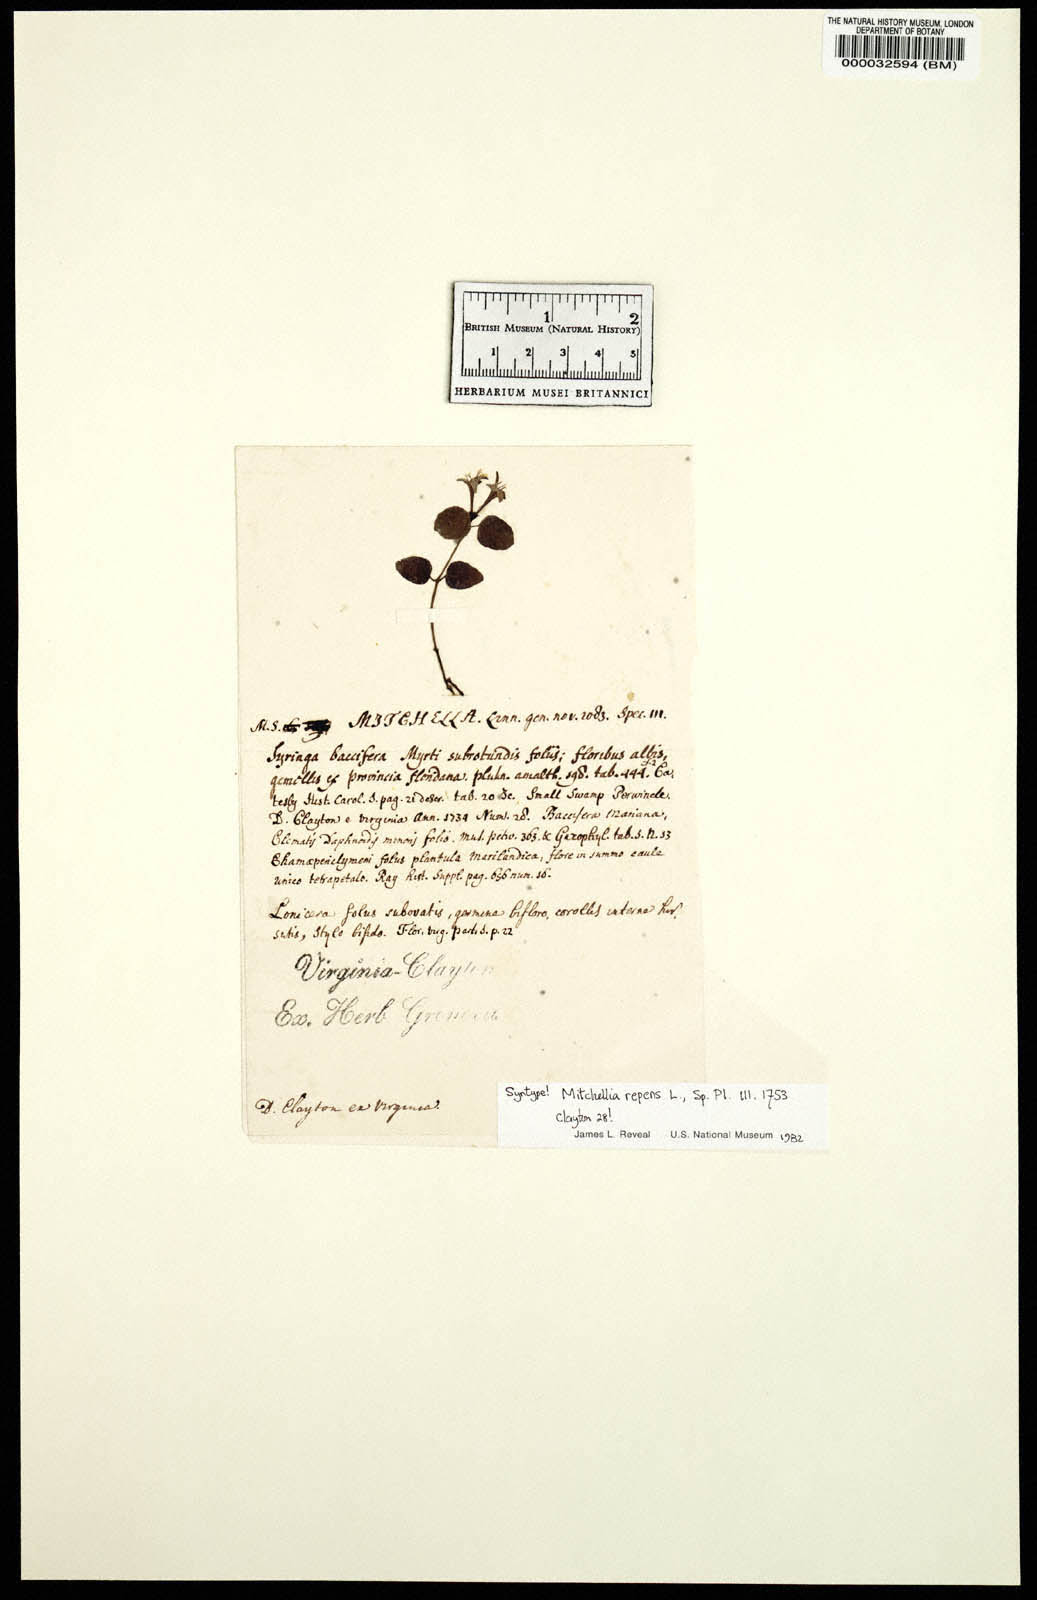 THE NATURAL HISTORY MUSEUM, LONDON
DEPARTMENT OF BOTANY
000032594 (BM)
1 2
BRITISH MUSEUM (NATURAL HISTORY)
1 2 3 4 5
HERBARIUM MUSEI BRITANNICI
M.S. MITCHELLA. Linn. gen. nov. 1083. Spec. 111.
Syringa baccifera Myrti subrotundis foliis; floribus albis,
gemellis ex provincia floridana. plukn. amalth. 198. tab. 444. Ca,
tesby Hist. Carol. I. pag. 21 descr. tab. 20 &c. Small Swamp Perwincle.
D. Clayton e virginia Ann. 1734 Num. 28. Baccifera Mariana,
Clematis Daphnoidis minoris folio. Mus. petiv. 363. & Gazophyl. tab. 1. N. 13
Chamæpericlymeni folus plantula Marilandica, flore in summo caule
unico tetrapetalo. Ray hist. Suppl. pag. 656 num. 16.
Lonicera folus subovatis, germine bifloro, corollis interne hir,
sutis, Stylo bifido. Flor. virg. part. I. p. 22
Virginia-Clayton
Ex. Herb
D. Clayton ex Virginia.
Syntype! Mitchellia repens L., Sp. Pl. 111. 1753
Clayton 28!
James L. Reveal U.S. National Museum 1982